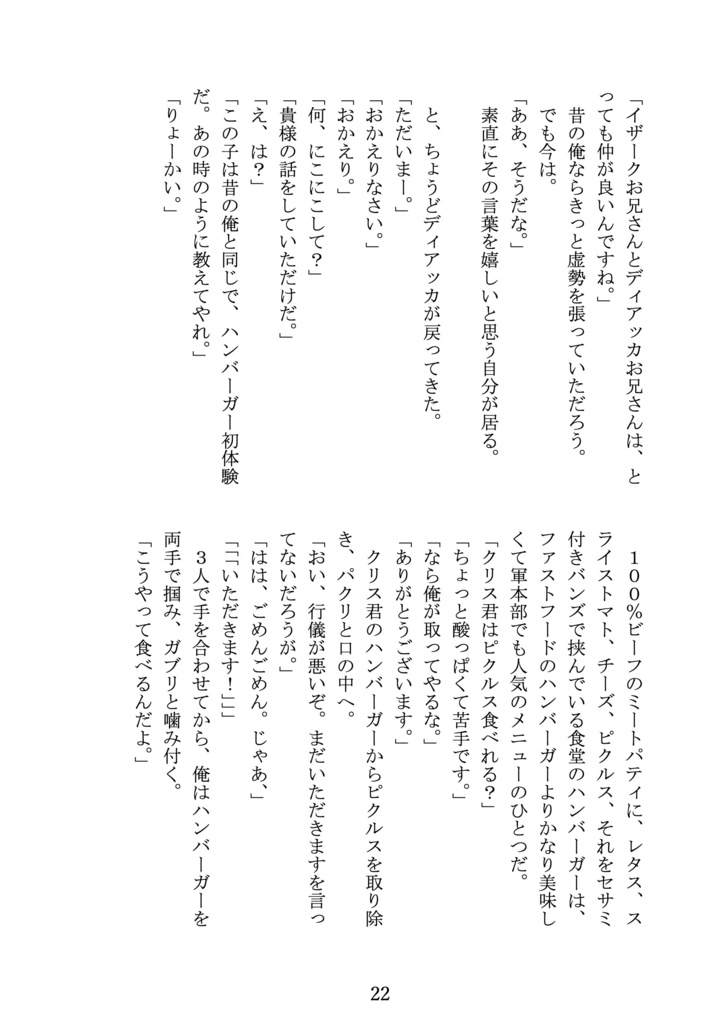 「イザークお兄さんとディアッカお兄さんは、と
っても仲が良いんですね。」
昔の俺ならきっと虚勢を張っていただろう。
でも今は。
「ああ、そうだな。」
素直にその言葉を嬉しいと思う自分が居る。
と、ちょうどディアッカが戻ってきた。
「ただいまー。」
「おかえりなさい。」
「おかえり。」
「何、にこにこして？」
「貴様の話をしていただけだ。」
「え、は？」
「この子は昔の俺と同じで、ハンバーガー初体験
だ。あの時のように教えてやれ。」
「りょーかい。」
１００％ビーフのミートパティに、レタス、ス
ライストマト、チーズ、ピクルス、それをセサミ
付きバンズで挟んでいる食堂のハンバーガーは、
ファストフードのハンバーガーよりかなり美味し
くて軍本部でも人気のメニューのひとつだ。
「クリス君はピクルス食べれる？」
「ちょっと酸っぱくて苦手です。」
「なら俺が取ってやるな。」
「ありがとうございます。」
クリス君のハンバーガーからピクルスを取り除
き、パクリと口の中へ。
「おい、行儀が悪いぞ。まだいただきますを言っ
てないだろうが。」
「はは、ごめんごめん。じゃあ、」
「「「いただきます！」」」
３人で手を合わせてから、俺はハンバーガーを
両手で掴み、ガブリと噛み付く。
「こうやって食べるんだよ。」
22